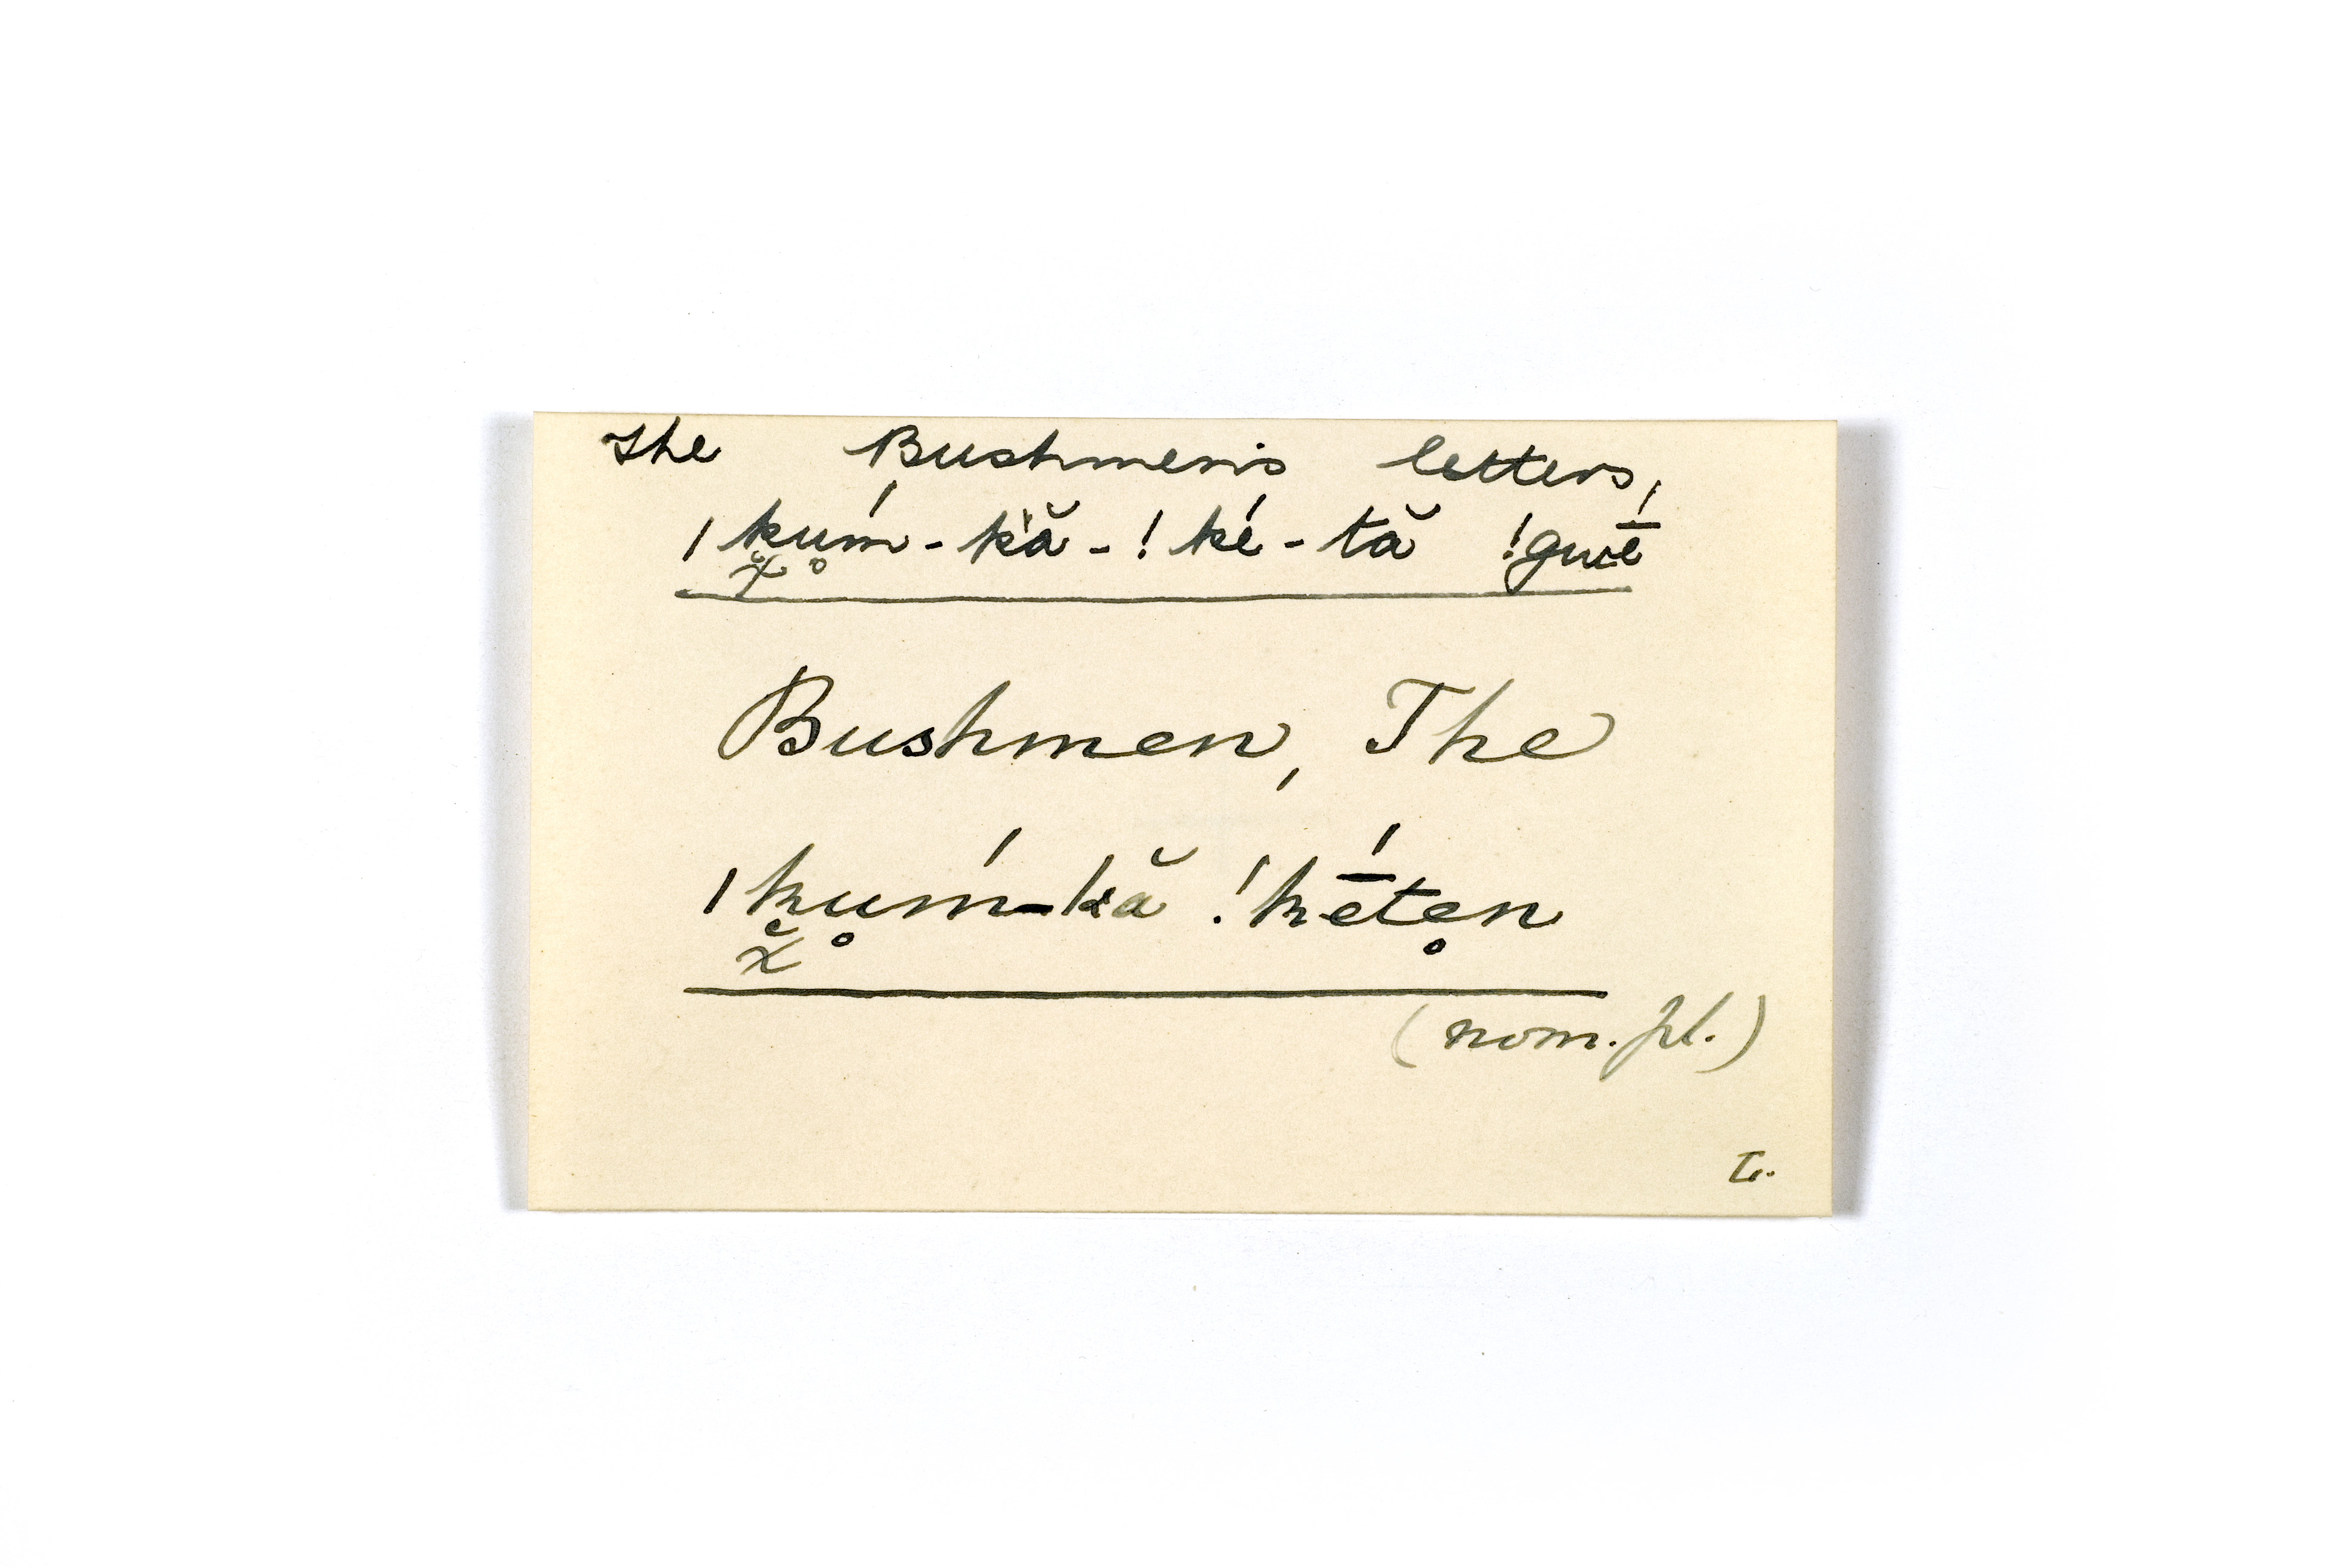 The Bushmen's letters,
ǀk̥̆χu̥ḿ-kă-!ké-tă !gwḗ
Bushmen, The
ǀk̆χu̥ḿ-kă !kḗte̥n
(nom. pl.)
L.